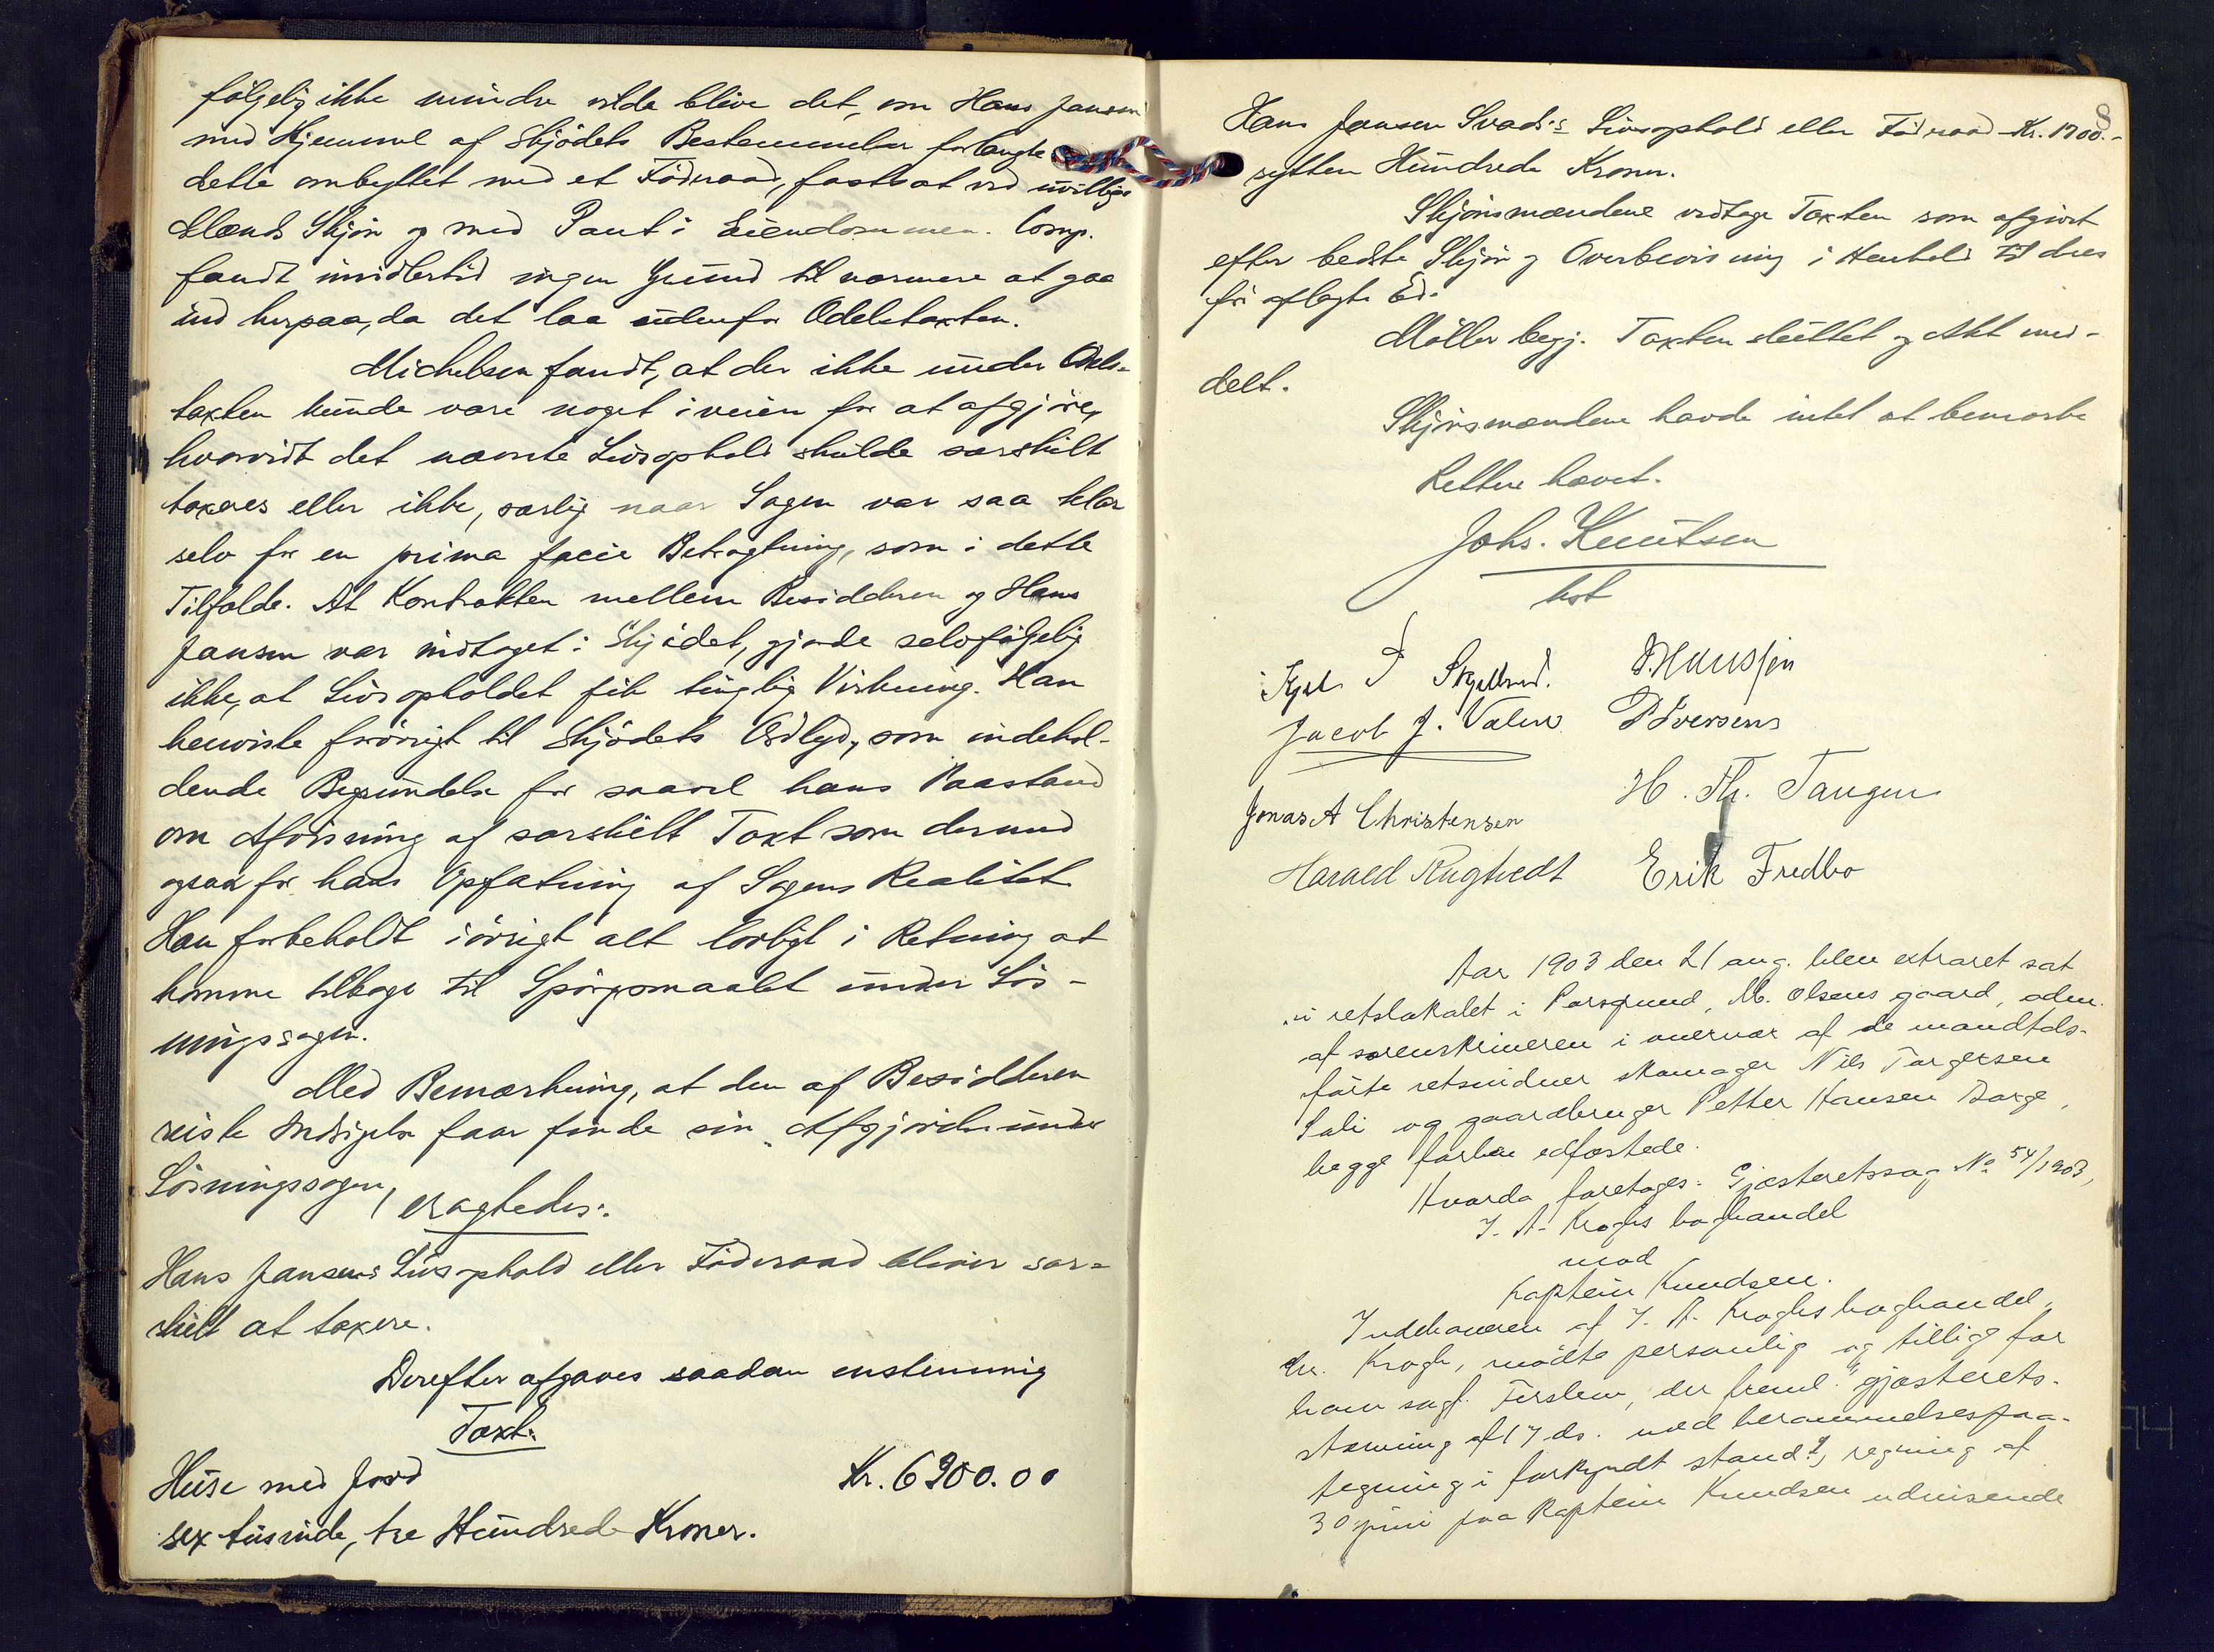 følgelig ikke mindre vilde blive det, om Hans Jansen
med Hjemmel af Skjødets Bestemmelser forlangte
dette ombyttet med et Föderaad, fastsat ved uvillige
Mænds Skjön og med Pant i Eiendommen. Comp.
fandt imidlertid ingen Grund til nærmere at gaa
ind herpaa, da det laa udenfor Odelstaxten.
Michelsen fandt, at der ikke under Odels-
taxten kunde være noget iveien for at afgjöre,
hvorvidt det nævnte Livsophold skulde særskilt
taxeres eller ikke, særlig naar Sagen var saa klar
selv for en prima facie Betragtning, som i dette
Tilfælde. At Kontrakten mellem Besidderen og Hans
Jansen var indtaget i Skjödet, gjorde selvfölgelig
ikke, at Livsopholdet fik tinglig Virkning. Han
henviste forövrigt til Skjödets Ordlyd, som indehol-
dende Begrundelse for saavel hans Paastand
om Afvisning af særskilt Taxt som dernæst
ogsaa for hans Opfatning af Sagens Realitet.
Han forbeholdt iövrigt alt lovligt i Retning at
komme tilbage til Spörgsmaalet under Lös-
ningssagen.
Med Bemærkning, at den af Besidderen
reiste Indsigelse faar finde sin Afgjörelse under
Lösningssagen,
eragtedes:
Hans Jansens Livsophold eller Föderaad bliver sær-
skilt at taxere.
Derefter afgaves saadan enstemmig
Taxt:
Huse med Jord Kr. 6300.00
sex tusinde, tre Hundrede Kroner.
8
Hans Jansen Svads's Livsophold eller Föderaad Kr. 1700.-
sytten Hundrede Kroner.
Skjönsmændene vedtage Taxten som afgivet
efter bedste Skjön og Overbevisning i Henhold til deres
för aflagte Ed.
Möller begj. Taxten sluttet og Akt med-
delt.
Skjönsmændene havde intet at bemærke
Retten hævet.
Johs. Knutsen
kst
P
Jacob J. Valen P Iversen
H. Th. Tangen
Jonas A Christensen
Harald Rugtvedt Erik Fredbo
Aar 1903 den 21 aug. blev extraret sat
i retslokalet i Porsgrund, M. Olsens gaard, adm.
af sorenskriveren i overvær af de mandtals-
förte retsvidner skomager Nils Torgersen
og gaardbruger Petter Hansen Borge,
begge forhen edfæstede.
Hvorda foretoges: Gjæsteretssag No 54/1903,
J. A. Kroghs boghandel
mod
Kaptein Knudsen.
Indehaveren af J. A. Kroghs boghandel,
hr. Krogh, mödte personlig og tillige for
ham sagf. Firslew, der freml. "gjæsterets-
stævning af 17 ds. med berammelsespaa-
tegning i forkyndt stand", regning af
30 juni paa Kaptein Knudsen udvisende